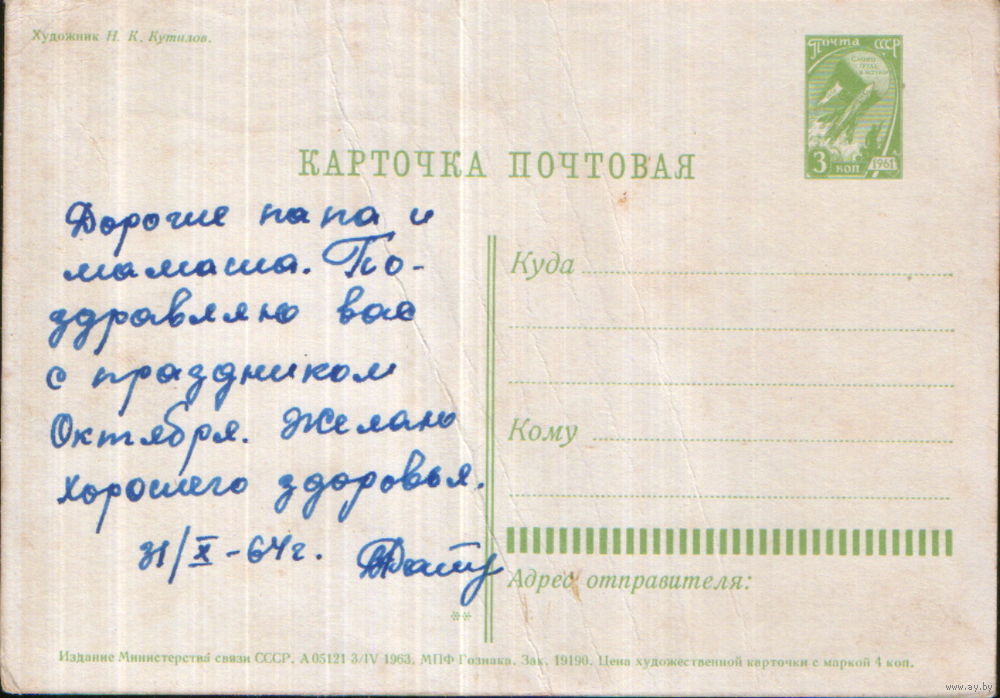 Художник Н. К. Кутилов.
Почта СССР
3 коп
1961
КАРТОЧКА ПОЧТОВАЯ
Дорогие папа и
мамаша. По-
здравляю вас
с праздником
Октября. Желаю
хорошего здоровья.
31/X-64г.
Куда
Кому
Адрес отправителя:
Издание Министерства связи СССР. А 05121 3/IV 1963. МПФ Гознака. Зак. 19190. Цена художественной карточки с маркой 4 коп.
www.ay.by